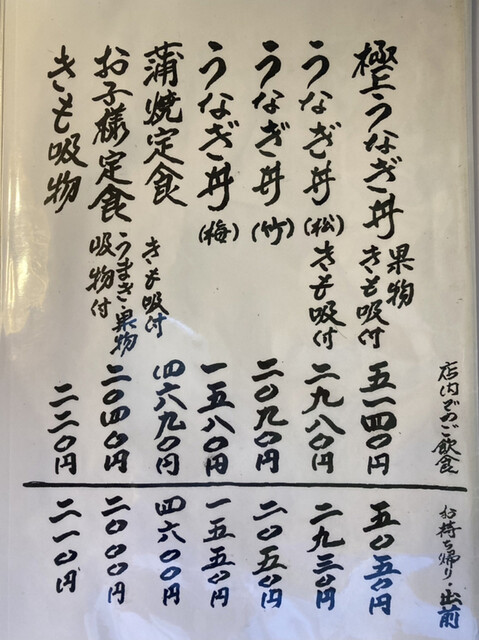 店内でのご飲食
お持ち帰り・出前
極上うなぎ丼 果物 きも吸付 五一四〇円
五〇五〇円
うなぎ丼(松)きも吸付 二九八〇円
二九三〇円
うなぎ丼(竹) 二〇九〇円
二〇五〇円
うなぎ丼(梅) 一五八〇円
一五五〇円
蒲焼定食 きも吸付 四六九〇円
四六〇〇円
お子様定食 うまき・果物 吸物付 二〇四〇円
二〇〇〇円
きも吸物 二二〇円
二一〇円